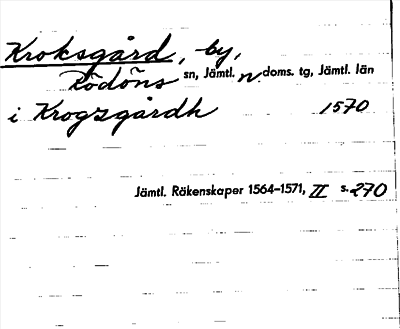 Kroksgård, by,
Rödöns sn, Jämtl. n. doms. tg, Jämtl. län
i Krogzgårdh 1570
Jämtl. Räkenskaper 1564-1571, II s. 270